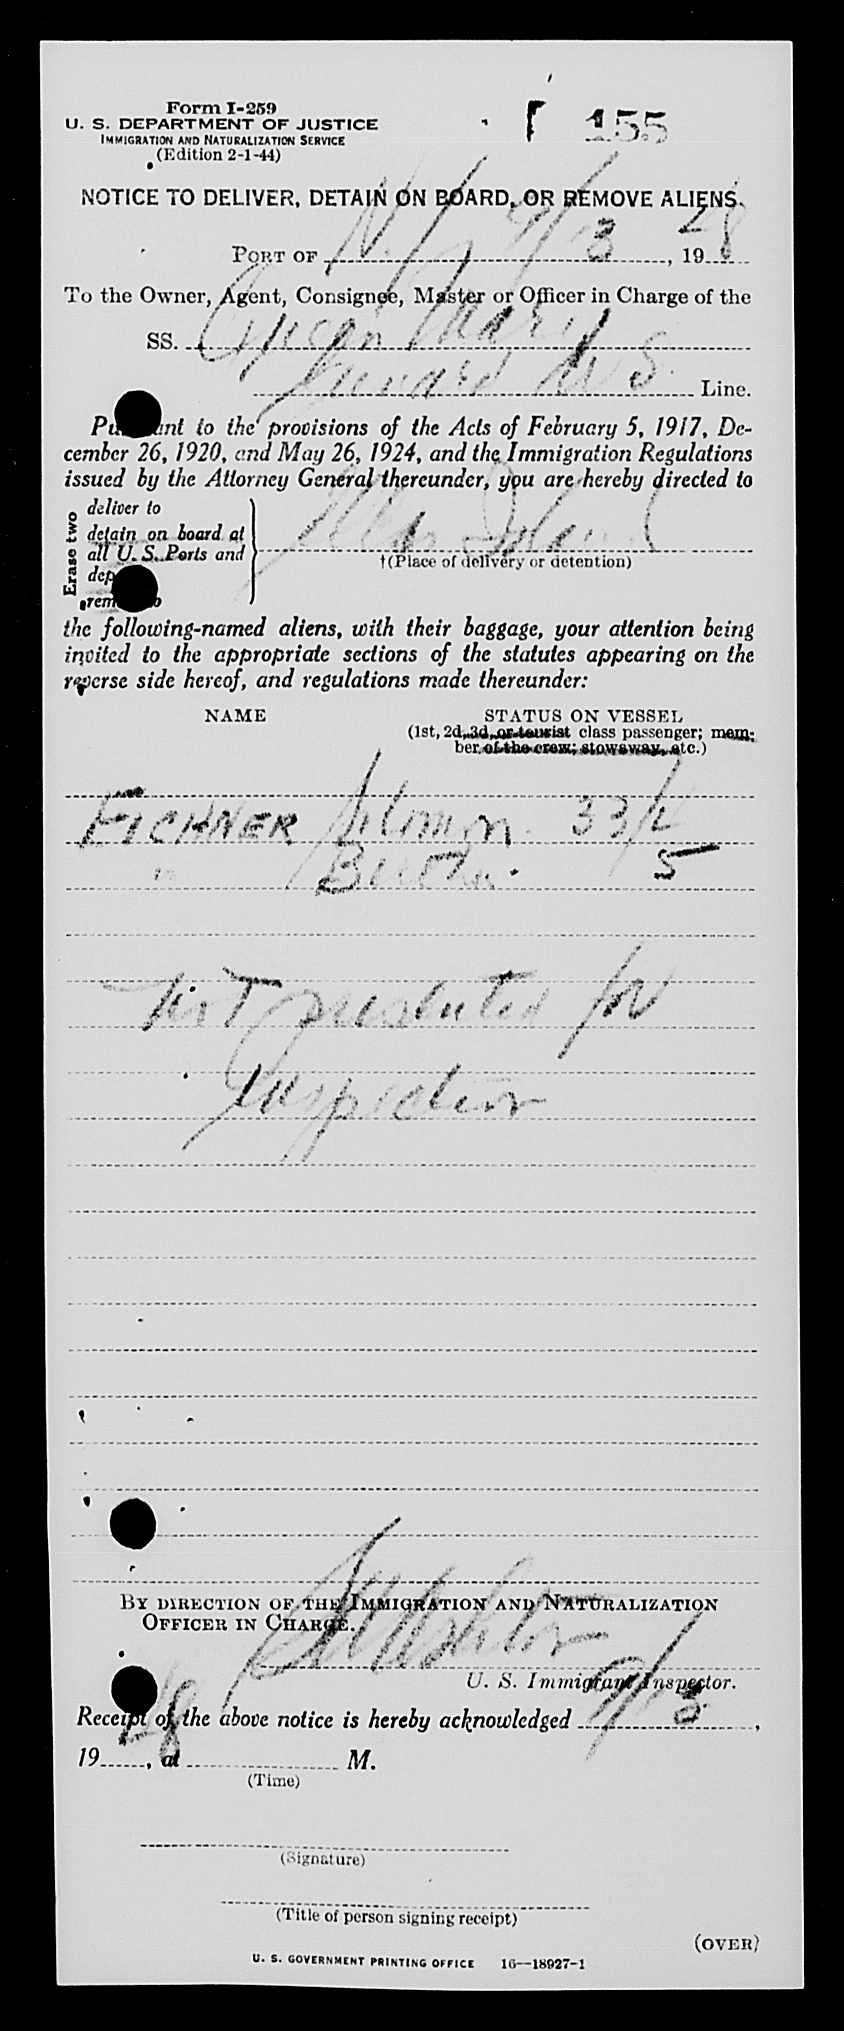 Form I-259
U. S. DEPARTMENT OF JUSTICE
IMMIGRATION AND NATURALIZATION SERVICE
(Edition 2-1-44)
155
NOTICE TO DELIVER, DETAIN ON BOARD, OR REMOVE ALIENS.
PORT OF N.Y. 9/13, 1948
To the Owner, Agent, Consignee, Master or Officer in Charge of the
SS. Queen Mary
Cunard W S Line.
Pursuant to the provisions of the Acts of February 5, 1917, De-
cember 26, 1920, and May 26, 1924, and the Immigration Regulations
issued by the Attorney General thereunder, you are hereby directed to
Erase two
deliver to
detain on board at
all U. S. Ports and
remove to
Ellis Island
†(Place of delivery or detention)
the following-named aliens, with their baggage, your attention being
invited to the appropriate sections of the statutes appearing on the
reverse side hereof, and regulations made thereunder:
NAME STATUS ON VESSEL
(1st, 2d, 3d, or tourist class passenger; mem-
ber of the crew; stowaway, etc.)
EICHNER Solomon 33/4
" Bertha. 5
Not presented for
Inspection
BY DIRECTION OF THE IMMIGRATION AND NATURALIZATION
OFFICER IN CHARGE.
U. S. Immigrant Inspector.
Receipt of the above notice is hereby acknowledged 9/13,
19 48, at M.
(Time)
(Signature)
(Title of person signing receipt)
(OVER)
U. S. GOVERNMENT PRINTING OFFICE 16—18927-1